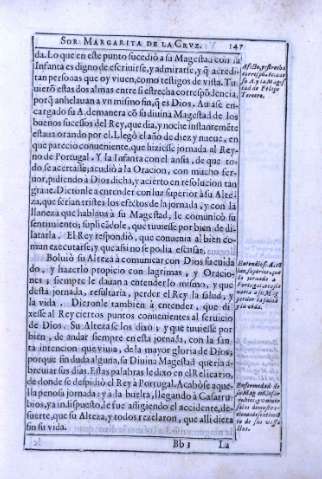 SOR MARGARITA DE LA CRVZ. 147
da. Lo que en este punto sucedió a su Magestad, i con la
Infanta es digno de escriuirse, y admirarse, y q̃ acredi-
tan personas que oy viuen, como testigos de vista. Tu-
uierõ estas dos almas entre si estrecha correspõdencia,
porq̃ anhelauan a vn mismo fin, q̃ es Dios. Auiase en-
cargado su A. de manera cõ su diuina Magestad de los
buenos sucessos del Rey, que dia, y noche instantemẽte
estaua orando por el. Llegó el año de diez y nueue, en
que pareció conueniente, que hiziesse jornada al Rey-
no de Portugal. Y la Infanta con el ansia, de que to-
do se acertasse, acudió a la Oracion, con mucho fer-
uor, pidiendo a Dios dicha, y acierto en resolucion tan
graue. Dieronle a entender con luz superior a su Alte-
za, que serian tristes los efectos de la jornada, y con la
llaneza que hablaua a su Magestad, le comunicó su
sentimiento; suplicádole, que tuuiesse por bien de di-
latarla. El Rey respondió, que conuenia al bien co-
mun executarse, y que assi no se podia escusar.
Boluió su Alteza à comunicar con Dios su cuida
do, y hazerlo propicio con lagrimas, y Oracio-
nes; siempre le dauan a entender lo mismo, y que
desta jornada, resultaria, perder el Rey la salud, y
la vida. Dieronle tambien à entender, que di-
xesse al Rey ciertos puntos conuenientes al seruicio
de Dios. Su Alteza se los dixo; y que tuuiesse por
bien, de andar siempre en esta jornada, con la san-
ta intencion que viuia, de la mayor gloria de Dios;
porque sin duda alguna, su Diuina Magestad queria a-
breuiar sus dias. Estas palabras le dixo en el Relicario,
de donde se despidió el Rey à Portugal. Acabóse aque-
lla penosa jornada; y à la buelta, llegando à Casarru-
bios, ya indispuesto, le fue afligiendo el accidente, de-
suerte, que su Alteza, y todos rezelaron, que alli diera
fin su vida.
Bb 3 La
Afecto, y estrecha
correspondencia de
su A. y la Mages-
tad de Felipe
Tercero.
Enfermedad de